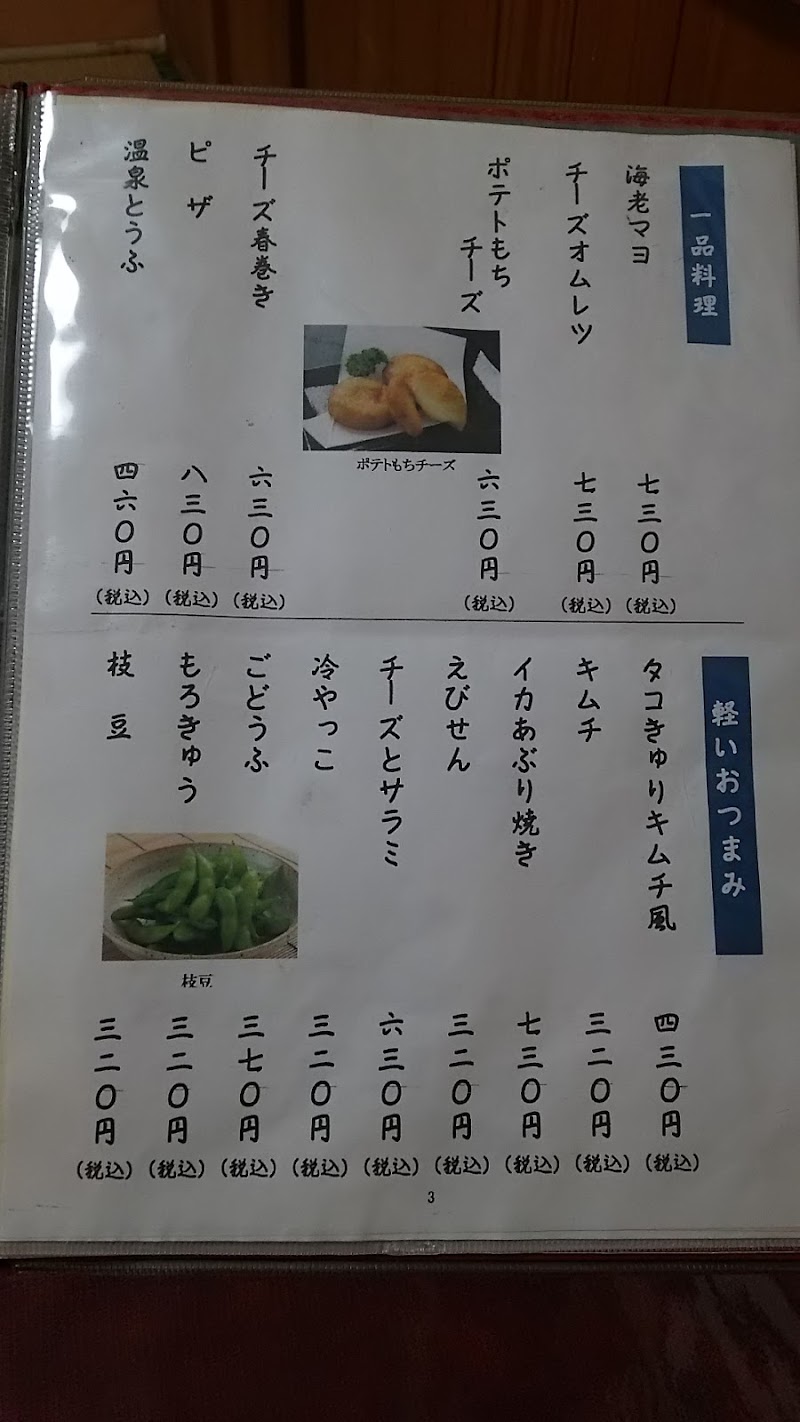 一品料理
海老マヨ
七三〇円
(税込)
チーズオムレツ
七三〇円
(税込)
ポテトもち
チーズ
六三〇円
(税込)
ポテトもちチーズ
チーズ春巻き
六三〇円
(税込)
ピザ
八三〇円
(税込)
温泉とうふ
四六〇円
(税込)
軽いおつまみ
タコきゅりキムチ風
四三〇円
(税込)
キムチ
三二〇円
(税込)
イカあぶり焼き
七三〇円
(税込)
えびせん
三二〇円
(税込)
チーズとサラミ
六三〇円
(税込)
冷やっこ
三二〇円
(税込)
ごどうふ
三七〇円
(税込)
もろきゅう
三二〇円
(税込)
枝豆
三二〇円
(税込)
枝豆
3